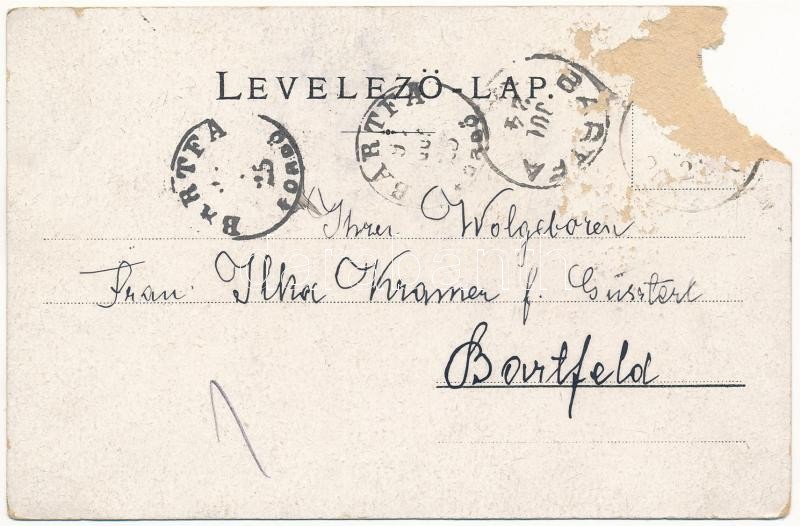 LEVELEZŐ-LAP.
BÁRTFA JUL 24
BÁRTFA
BÁRTFA 25
Ihrer Wolgeboren
Frau Ilka Kramer f. Guszterl
Bartfeld